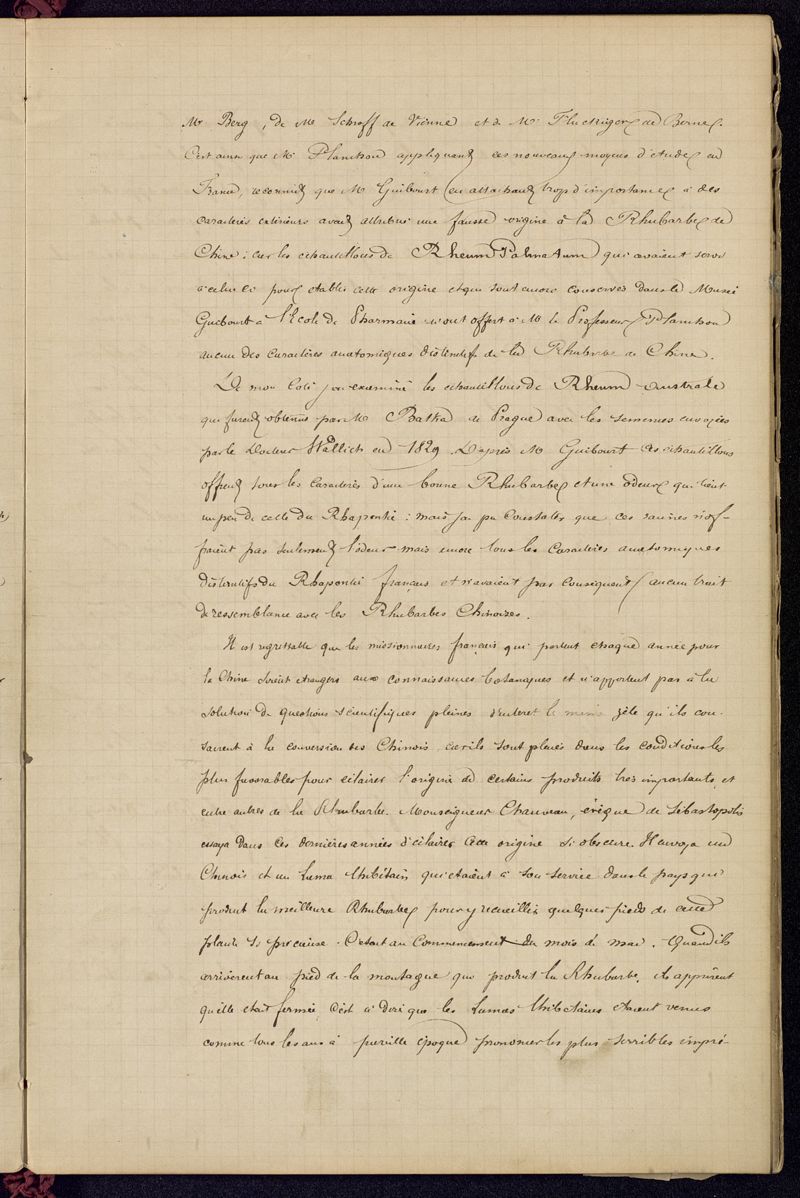 Mr Berg, de Mr Schroff de Vienne et de Mr Fluckiger de Berne.
C'est ainsi que Mr Planchon appliquant ces nouveaux moyens d'etudes en
France, reconnut que Mr Guibourt en attachant trop d'importance à des
caractères extérieurs avait attribué une fausse origine à la Rhubarbe de
Chine; car les echantillons de Rheum Palmatum qui avaient servi
à celui ci pour etablir cette origine et qui sont encore conservés dans le Musée
Guibourt à l'Ecole de Pharmacie n'ont offert à Mr le Professeur Planchon
aucun des caractères anatomiques distinctifs de la Rhubarbe de Chine.
De mon coté j'ai examiné les echantillons de Rheum Australe
qui furent obtenus par Mr Batka de Prague avec les semences envoyées
par le Docteur Wallich en 1829. D'après Mr Guibourt ces echantillons
offrent tous les caractères d'une bonne Rhubarbe et une odeur qui tient
un peu de celle du Rhapontic: mais j'ai pu constater que ces racines n'of-
fraient pas seulement l'odeur mais encore tous les caractères anatomiques
distinctifs du Rhapontic français et n'avaient par consequent aucun trait
de ressemblance avec les Rhubarbes Chinoises.
Il est regrettable que les missionnaires français qui partent chaque année pour
la Chine soient etrangers aux connaissances botaniques et n'apportent pas à la
solution de questions scientifiques pleines d'interet le même zèle qu'ils con-
sacrent à la conversion des Chinois car ils sont placés dans les conditions les
plus favorables pour eclairer l'origine de certains produits très importants et
entre autres de la Rhubarbe. Monseigneur Chauveau, évêque de Sébastopolis
essaya dans ces dernières années d'éclairer cette origine si obscure. Il envoya un
Chinois et un Lama thibétain qui étaient à son service dans le pays qui
produit la meilleure Rhubarbe pour y recueillir quelques pieds de cette
plante si précieuse. C'etait au commencement du mois de mai. Quand ils
arrivèrent au pied de la montagne qui produit la Rhubarbe, ils apprirent
qu'elle etait fermée, c'est à dire que les Lamas thibétains etaient venus
comme tous les ans à pareille époque prononcer les plus terribles impré-